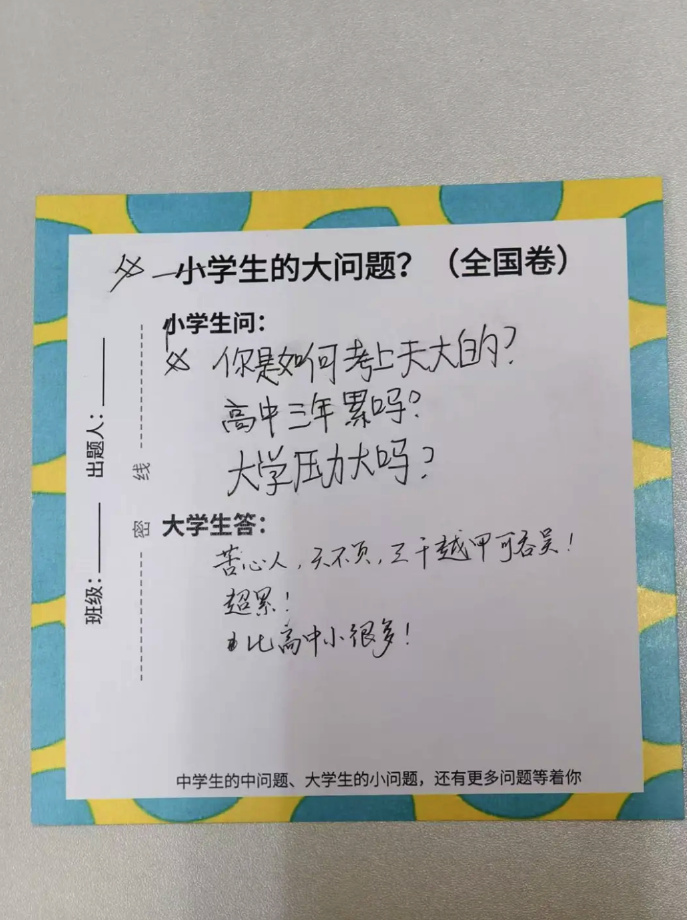 小学生的大问题？（全国卷）
小学生问：
你是如何考上天大的？
高中三年累吗？
大学压力大吗？
大学生答：
苦心人，天不负，三千越甲可吞吴！
超累！
比高中小很多！
班级：
出题人：
密 线
中学生的中问题、大学生的小问题，还有更多问题等着你